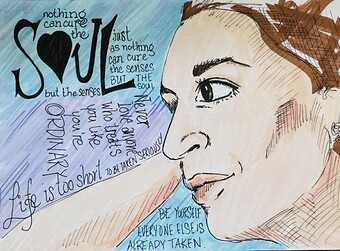 nothing
can cure
the
SOUL
but the senses
just
as nothing
can cure
the senses
BUT THE
SOUL
Never
love anyone
who treats
you like
you're
ORDINARY
Life is too short TO BE TAKEN SERIOUSLY
BE YOURSELF
EVERYONE ELSE IS
ALREADY TAKEN